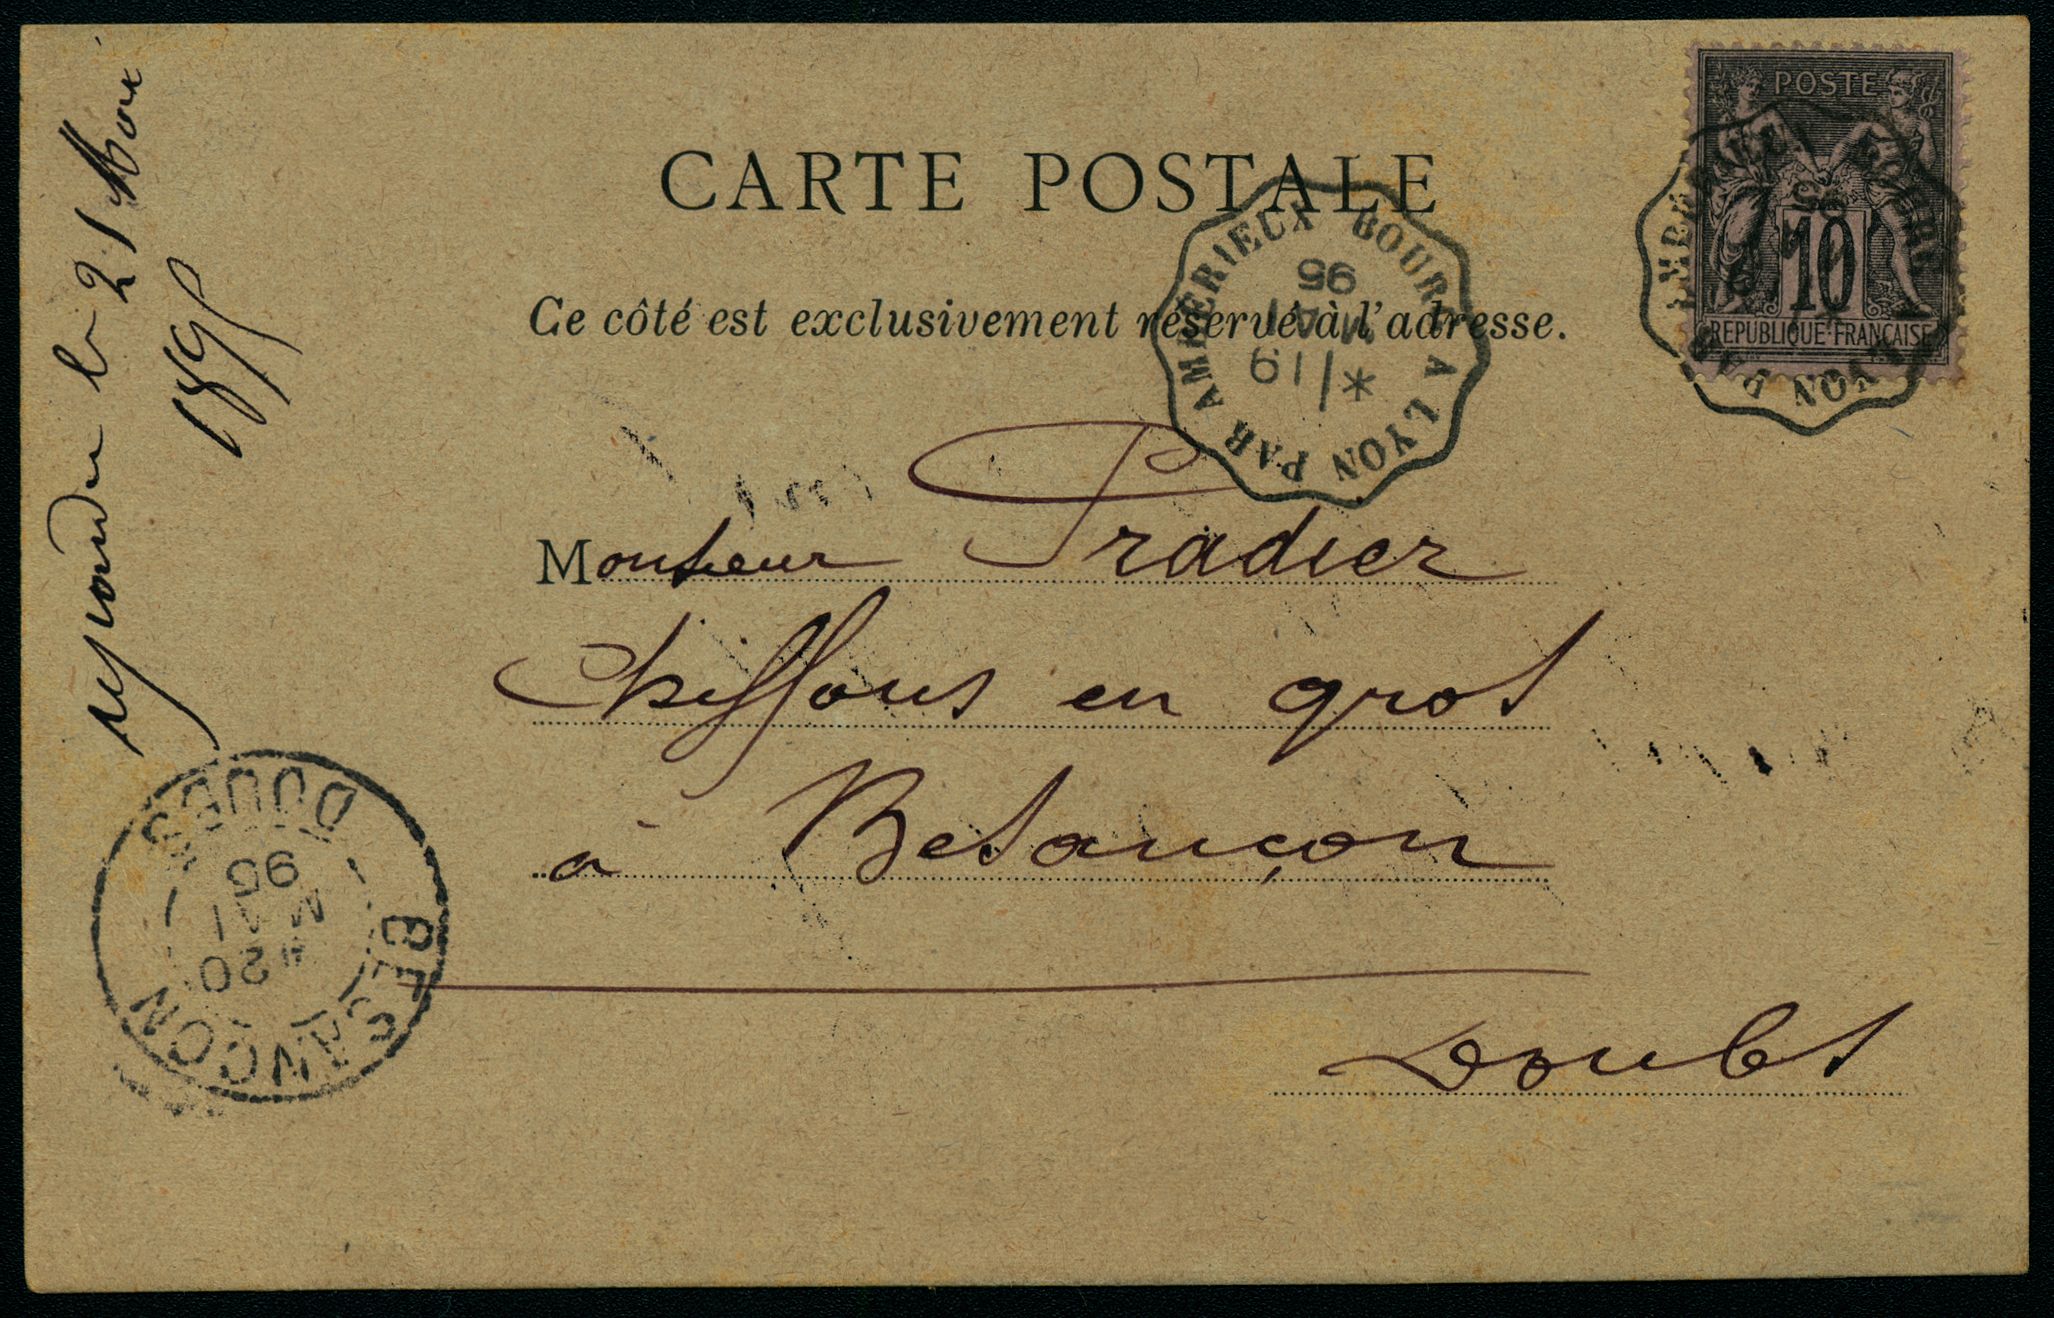 CARTE POSTALE
Ce côté est exclusivement réservé à l'adresse.
POSTE
10
REPUBLIQUE FRANCAISE
BOURG A LYON PAR AMBERIEUX
* / 19
MAI
95
Monsieur Pradier
Chiffons en gros
à Besançon
Doubs
le 21 Mai
1895
BESANCON
DOUBS
20
MAI
95